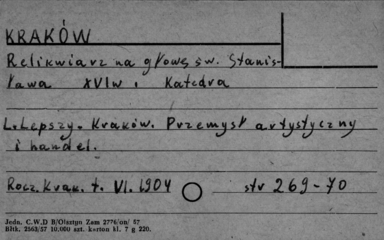 KRAKÓW
Relikwiarz na głowę św. Stanis-
ława XVI w. Katedra
L. Lepszy. Kraków. Przemysł artystyczny
i handel.
Rocz. Krak. t. VI. 1904 str 269-70
Jedn. C.W.D B/Olsztyn Zam 2776/on/ 57
Bltk. 2563/57 10.000 szt. karton kl. 7 g 220.